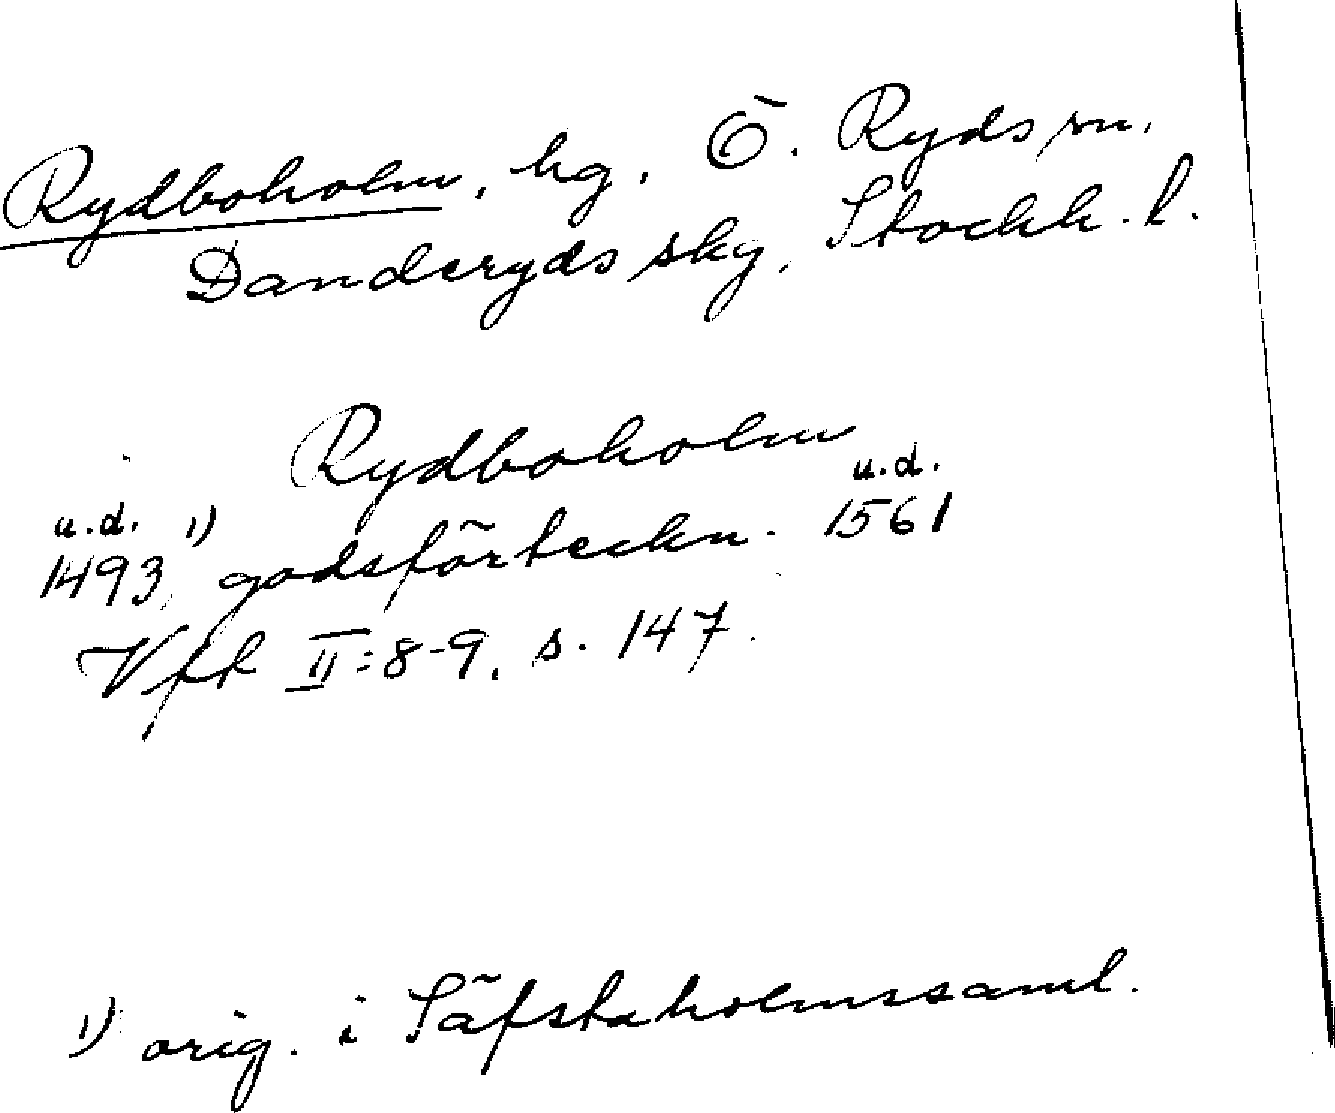 Rydboholm, hg, Ö. Ryds sn.
Danderyds skg, Stockh. l.
Rydboholm
u.d. 1) u.d.
1493, godsförteckn. 1561
Vfk II:8-9, s. 147.
1) orig. i Säfstaholmssaml.